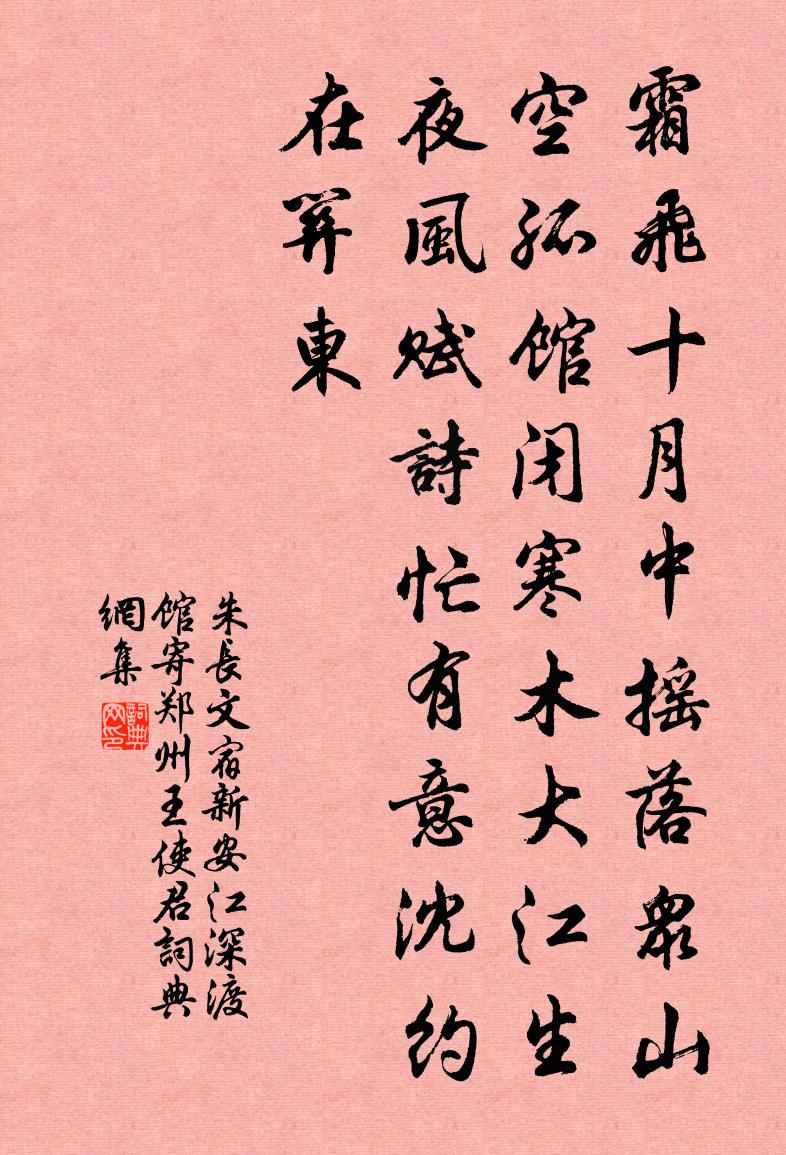 霜飛十月中摇落衆山
空孤馆闭寒木大江生
夜風赋詩忙有意沈约
在关東
朱長文宿新安江深渡
馆寄郑州王使君詞典
網集
詞典
网印